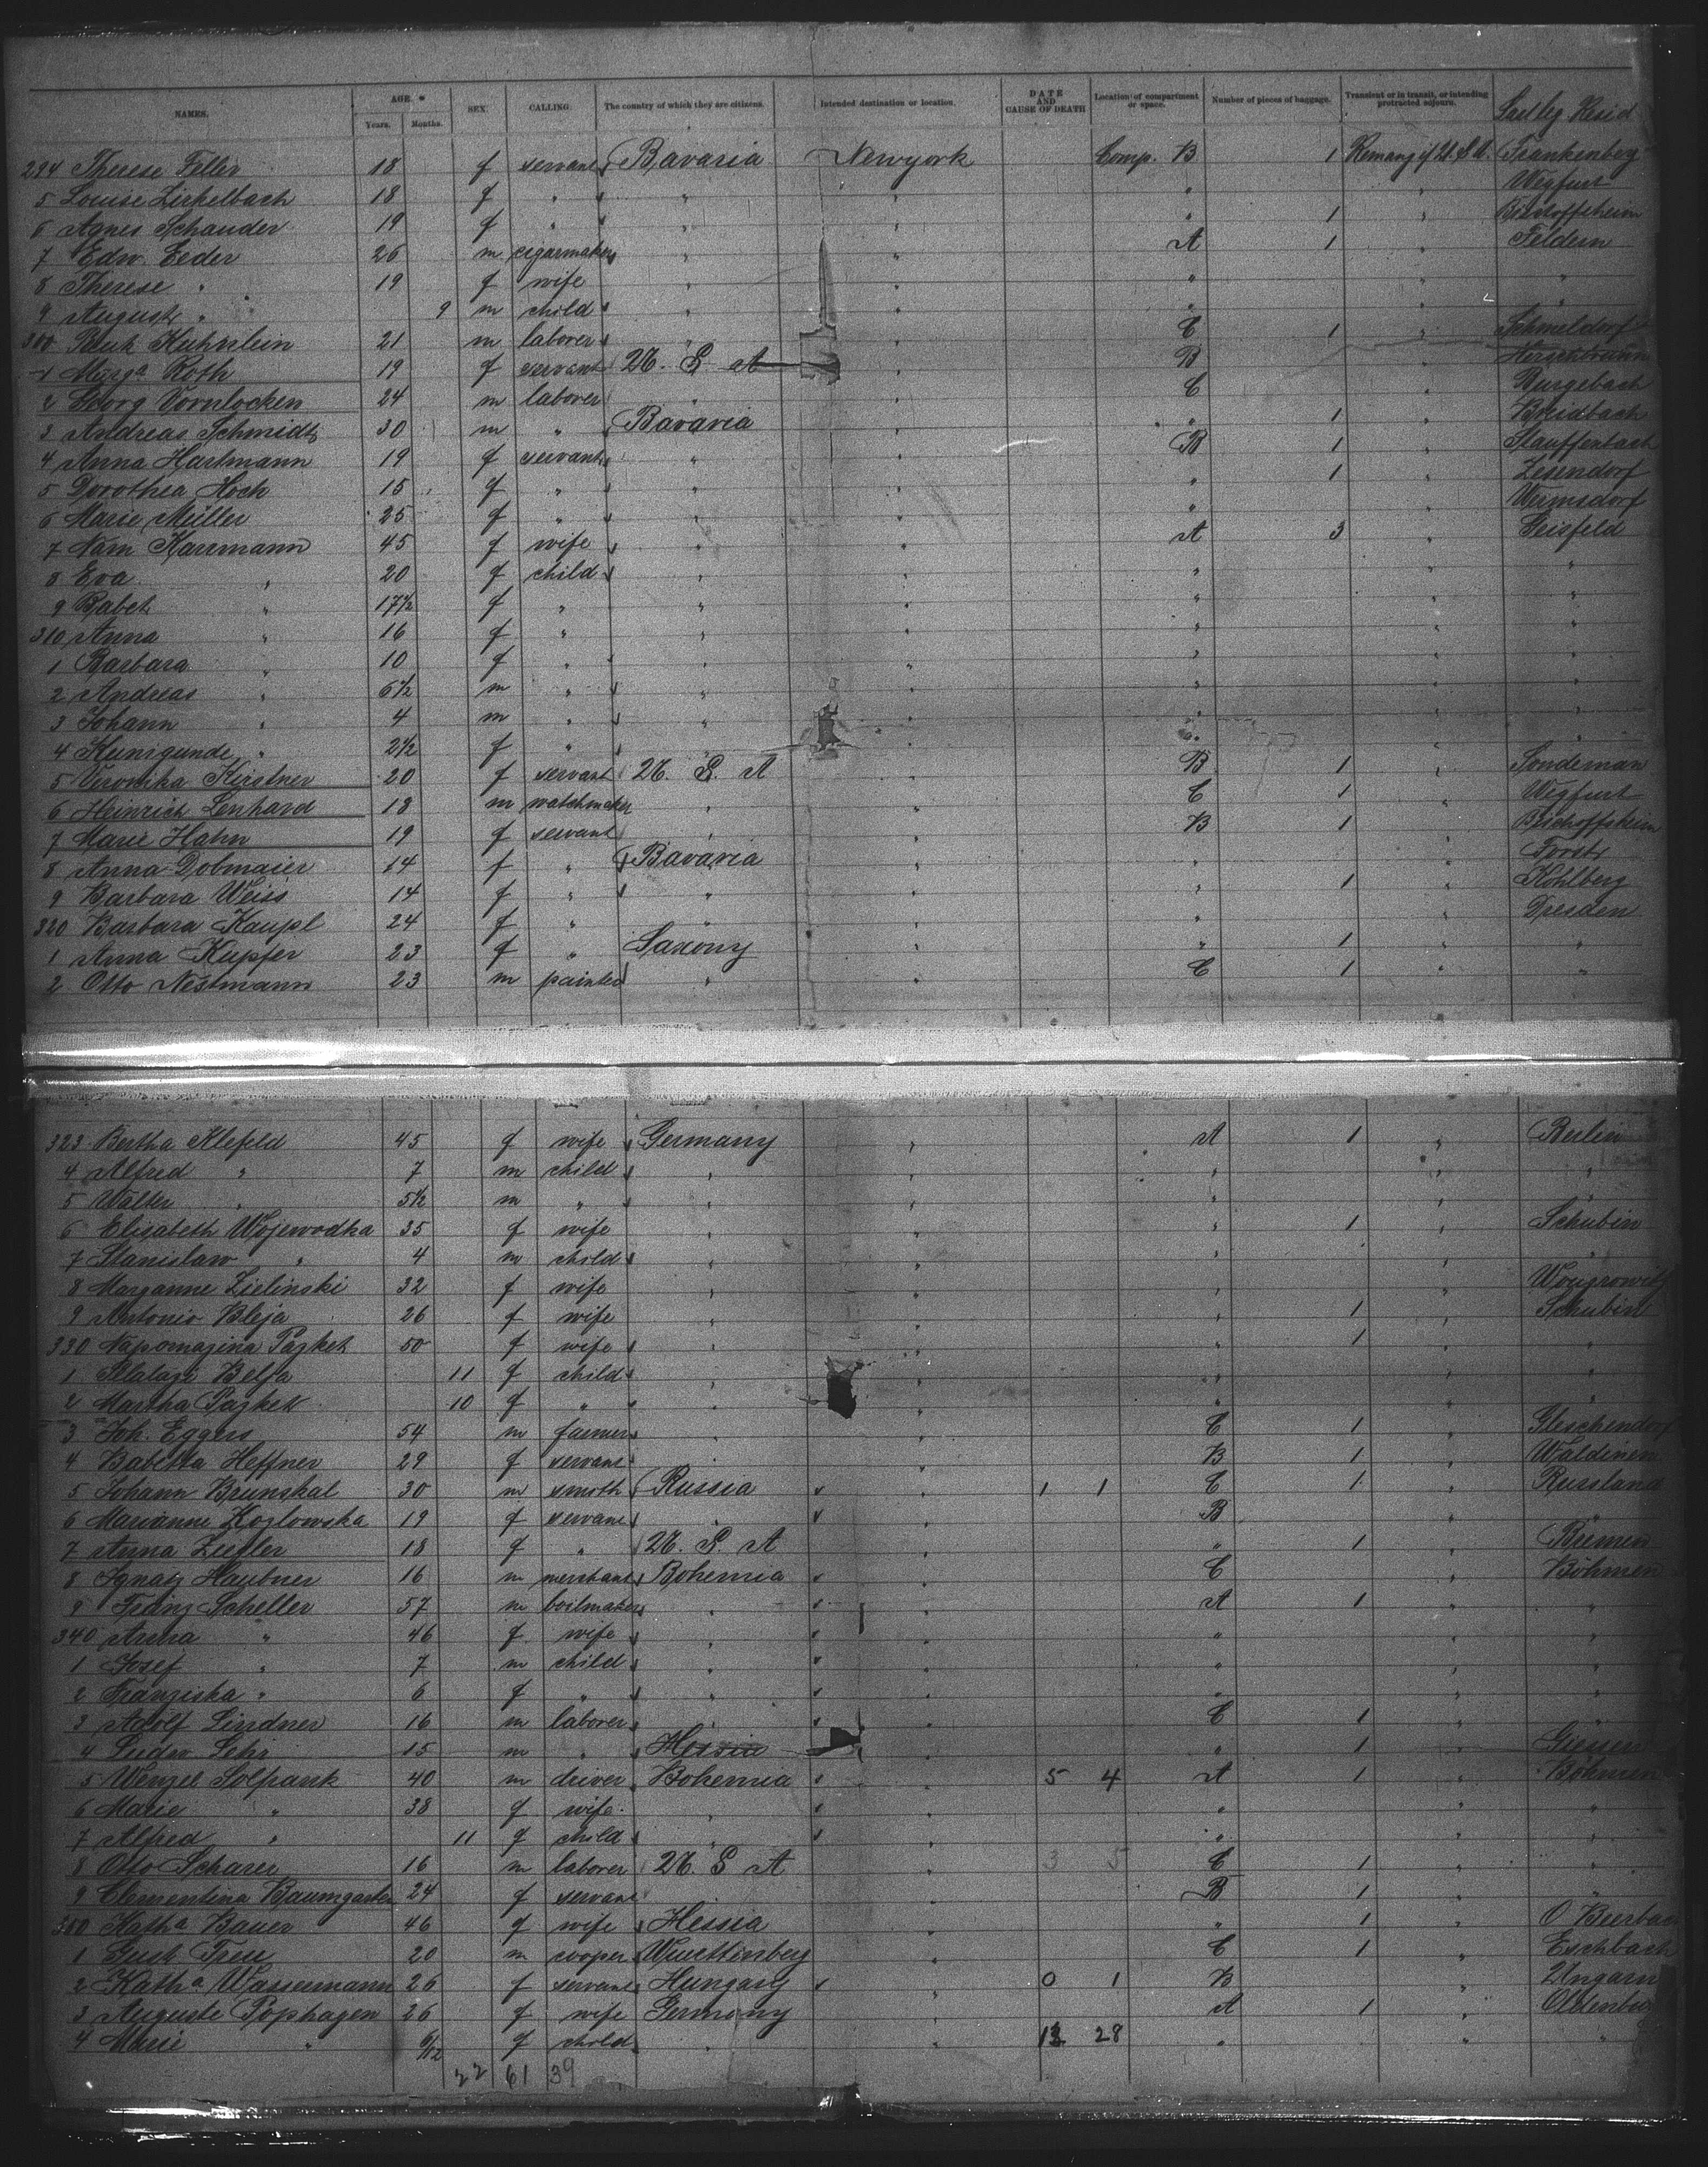 NAMES. AGE. Years. Months. SEX. CALLING. The country of which they are citizens. Intended destination or location. DATE AND CAUSE OF DEATH Location of compartment or space. Number of pieces of baggage. Transient or in transit, or intending protracted sojourn. Last leg. Resid
294 Therese Feller 18 f servant Bavaria Newyork Comp. B 1 Frankenberg
5 Louise Zirkelbach 18 f " " " " Wegfurt
6 Agnes Schauder 19 f " " " " 1 " Bischoffsheim
7 Edw. Eeder 26 m cigarmaker " " A 1 " Feldern
8 Therese " 19 f wife " " " " "
9 August " 9 m child " " " " "
300 Kuhnlein 21 m laborer " " C 1 " Schmeldorf
1 Marga Roth 19 f servant U. S. A " B
2 Georg Vornlocken 24 m laborer " " C " Burgebach
3 Andreas Schmidt 30 m " Bavaria " " 1 " Breidbach
4 Anna Hartmann 19 f servant " " B 1 " Stauffenbach
5 Dorothea Hoch 15 f " " " " 1 " Zesendorf
6 Marie Müller 25 f " " " " " Wermsdorf
7 Karrmann 45 f wife " " A 3 " Geisfeld
8 Eva " 20 f child " " " " "
9 Babet " 17½ f " " " " " "
310 Anna " 16 f " " " " " "
1 Barbara " 10 f " " " " " "
2 Andreas " 6½ m " " " " " "
3 Johann " 4 m " " " " " "
4 Kunigunde " 2½ f " " " " " "
5 Veronika Kirstner 20 f servant U. S. A B 1 " Sondernau
6 Heinrich Lenhard 18 m watchmaker " " C 1 " Wegfurt
7 Marie Hahn 19 f servant " " B 1 " Bischoffsheim
8 Anna Dobmaier 14 f " Bavaria " " " Forst
9 Barbara Weiss 14 f " " " " 1 " Kohlberg
320 Barbara Kaupl 24 f " " " " Dresden
1 Anna Kupfer 23 f " Saxony " " 1 " "
2 Otto Nestmann 23 m painter " " C 1 " "
323 Bertha Klefeld 45 f wife Germany " A 1 " Berlin
4 Alfred " 7 m child " " " " "
5 Walter " 5½ m " " " " " "
6 Elisabeth Wojewodka 35 f wife " " " 1 " Schubin
7 Stanislaw " 4 m child " " " " "
8 Maryanne Zielinski 32 f wife " " " " Wongrowitz
9 Antonio Bleja 26 f wife " " " 1 " Schubin
330 50 f wife " " " 1 " "
1 11 f child " " " " "
2 Martha 10 f " " " " " "
3 Joh. Eggers 54 m farmer " " C 1 " Gleschendorf
4 Babetta Heffner 29 f servant " " B 1 "
5 Johann Brunskal 30 m smith Russia " 1 1 C 1 " Russland
6 Marianne Kozlowska 19 f servant " " B " "
7 Anna Ziegler 18 f " U. S. A " 1 " Bremen
8 Ignatz Haubner 16 m merchant Bohemia " C " Böhmen
9 Franz Scheller 57 m boilmaker " " A 1 " "
340 Anna " 46 f wife " " " " "
1 Josef " 7 m child " " " " "
2 Franziska " 6 f " " " " " "
3 Adolf Lindner 16 m laborer " " C 1 " "
4 Ludw Lehr 15 m " Hessia " " 1 " Giessen
5 Wenzel Solfrank 40 m driver Bohemia " 5 4 A 1 " Böhmen
6 Marie " 38 f wife " " " " "
7 Alfred " 11 f child " " " " "
8 Otto Scharer 16 m laborer U. S. A " 3 5 C 1 " "
9 Clementina Baumgarten 24 f servant " B 1 " "
350 Katha Bauer 46 f wife Hessia " " 1 " O Beerbach
1 Gust Treu 20 m cooper Wuerttenberg " C 1 " Eschbach
2 Katha Wassermann 26 f servant Hungary " 0 1 B " Ungarn
3 Auguste Pophagen 26 f wife Germany A 1 " Oldenburg
4 Marie " 6/12 f child " " 13 28 " " "
22 61 39